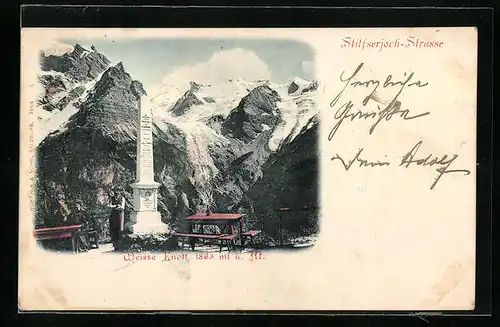 Stilfserjoch-Strasse
Herzliche
Grüsse
Dein Adolf
Weisse Knott 1863 mt ü. M.